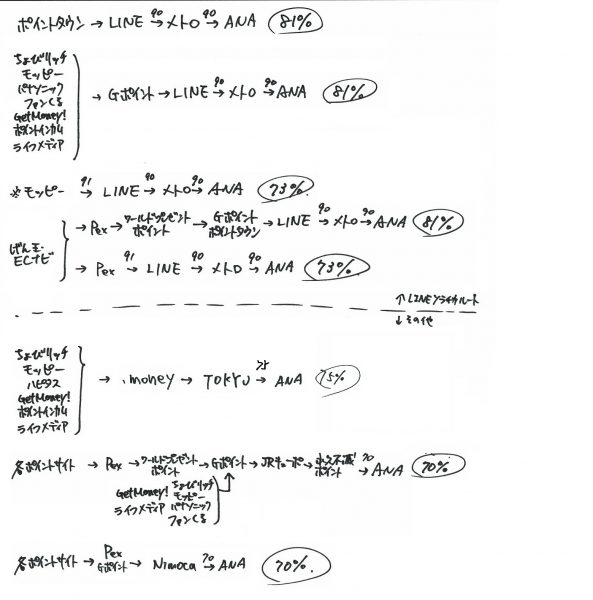 ポイントタウン → LINE 90→ メトロ 90→ ANA 81%
ちょびリッチ
モッピー
パナソニック
ファンくる
GetMoney!
ポイントインカム
ライフメディア
→ Gポイント → LINE 90→ メトロ 90→ ANA 81%
※モッピー 91→ LINE 90→ メトロ 90→ ANA 73%
げん玉・
ECナビ
→ Pex → ワールドプレゼント
ポイント
→ Gポイント
ポイントタウン
→ LINE 90→ メトロ 90→ ANA 81%
→ Pex 91→ LINE 90→ メトロ 90→ ANA 73%
↑LINEソラチカルート
↓その他
ちょびリッチ
モッピー
ハピタス
GetMoney!
ポイントインカム
ライフメディア
→ .money → TOKYU 75→ ANA 75%
各ポイントサイト → Pex → ワールドプレゼント
ポイント
→ Gポイント → JRキューポ → 永久不滅
ポイント
70→ ANA 70%
GetMoney!
ライフメディア
ちょびリッチ
モッピー
パナソニック
ファンくる
各ポイントサイト → Pex
Gポイント
→ Nimoca 70→ ANA 70%.